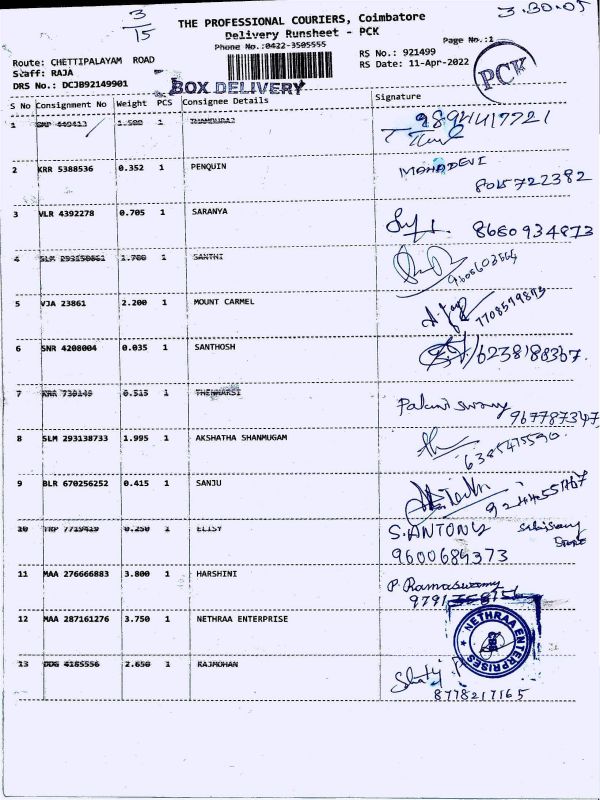 3
15
3.30.05
THE PROFESSIONAL COURIERS, Coimbatore
Delivery Runsheet - PCK
Phone No.:0422-3505555
Page No.:1
Route: CHETTIPALAYAM ROAD
RS No.: 921499
Staff: RAJA
RS Date: 11-Apr-2022
DRS No.: DCJB92149901
PCK
BOX DELIVERY
S No Consignment No Weight PCS Consignee Details Signature
1 1.500 1 THAMDURAJ 9894417721
2 KRR 5388536 0.352 1 PENQUIN MAHADEVI
8015722382
3 VLR 4392278 0.705 1 SARANYA 8660934873
4 SLM 293150661 1.700 1 SANTHI
5 VJA 23861 2.200 1 MOUNT CARMEL 7708579873
6 SNR 4208004 0.035 1 SANTHOSH 6238188367
7 KRR 739149 0.515 1 Palani Swamy
9677873747
8 SLM 293138733 1.995 1 AKSHATHA SHANMUGAM
6385475590
9 BLR 670256252 0.415 1 SANJU
10 TRP 7719419 0.250 1 ELISY S.ANTONY
9600689373
11 MAA 276666883 3.800 1 HARSHINI P. Ramaswamy
12 MAA 287161276 3.750 1 NETHRAA ENTERPRISE
NETHRAA ENTERPRISES
13 DDG 4185556 2.650 1 RAJMOHAN
8778217165